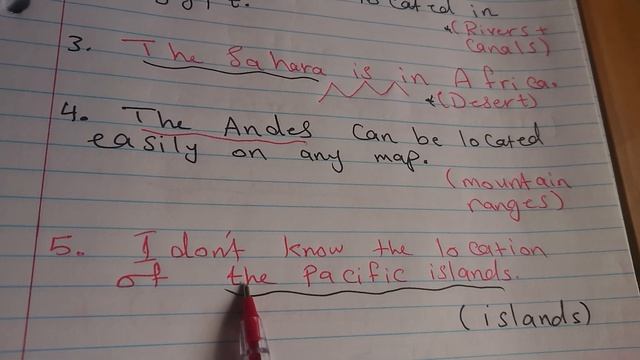 located in
*(Rivers +
canals)
3. The Sahara is in Africa.
*(Desert)
4. The Andes can be located
easily on any map.
(mountain
ranges)
5. I don't know the location
of the pacific islands.
(islands)